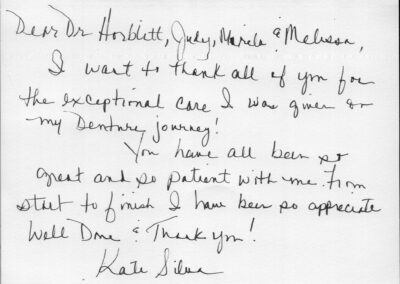 Dear Dr Horblitt, Judy, Marila & Melissa,
I want to thank all of you for
the exceptional care I was given on
my Denture journey!
You have all been so
great and so patient with me. From
start to finish I have been so appreciate
Well Done & Thank you!
Kate Silva